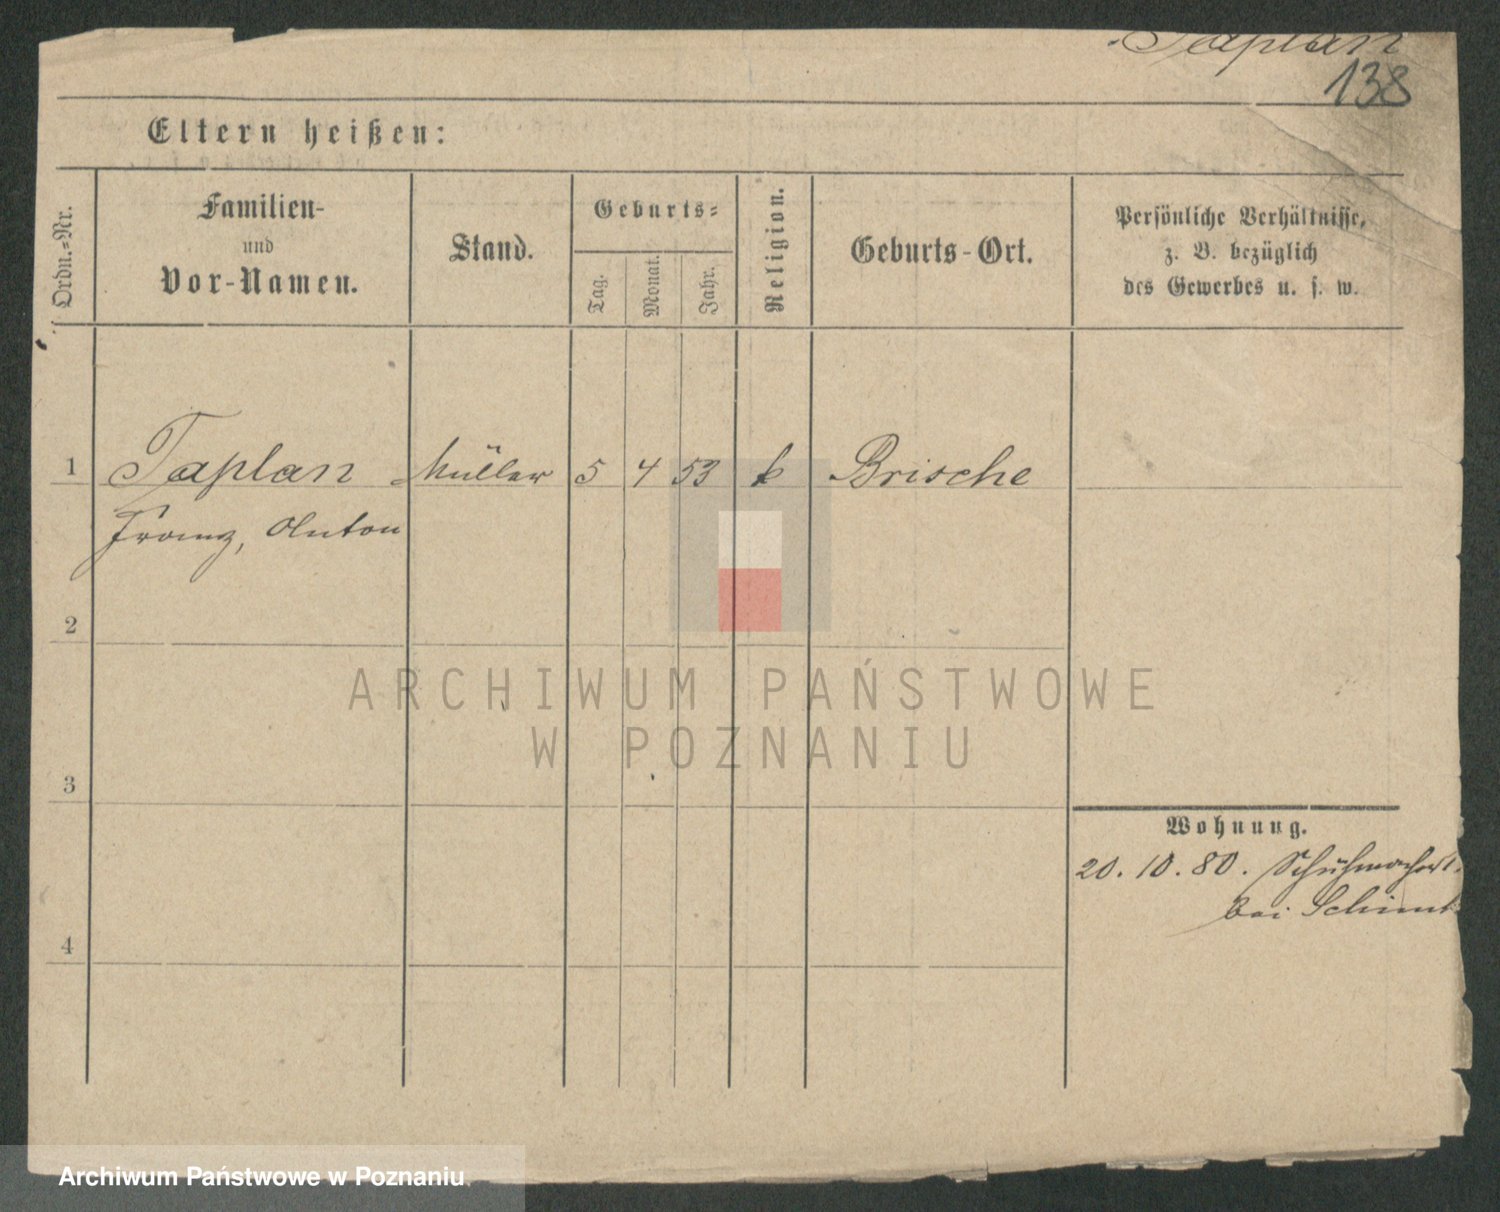 Taplan
138
Eltern heißen:
Ordn.=Nr.
Familien-
und
Vor-Namen.
Stand.
Geburts=
Tag.
Monat.
Jahr.
Religion.
Geburts-Ort.
Persönliche Verhältnisse,
z. B. bezüglich
des Gewerbes u. s. w.
1 Taplan Müller 5 4 53 k Brische
Franz, Anton
2
3
4
Wohnung.
20. 10. 80.
bei
ARCHIWUM PAŃSTWOWE
W POZNANIU
Archiwum Państwowe w Poznaniu